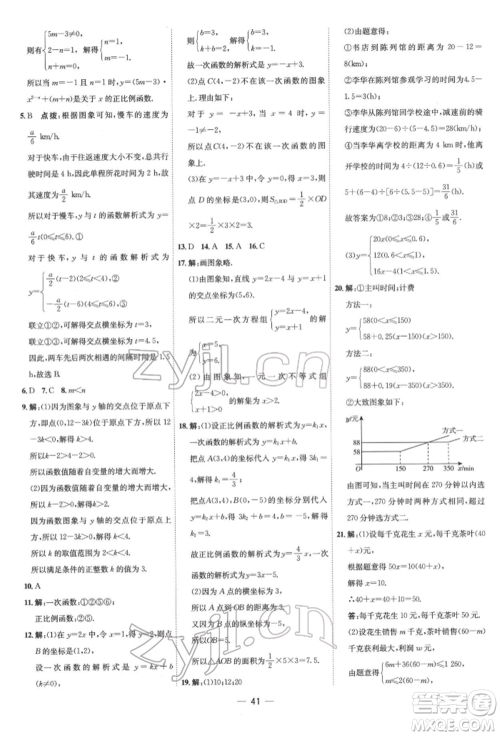 则有{5m-3≠0, 2-n=1, 解得{m=-1, n=1.
n+m=0,
所以当 m=-1,n=1 时,y=(5m-3)x
+(m+n)是关于 x 的正比例函数.
5. B 点拨:根据图象可知,慢车的速度为
a/6 km/h.
对于快车,由于往返速度大小不变,总共行
驶时间是 4 h,因此单程所花时间为 2 h,故
其速度为 a/2 km/h.
所以对于慢车,y 与 t 的函数解析式为 y=
a/6 t(0≤t≤6). ①
对于快车,y 与 t 的函数解析式为
联立①②,可解得交点横坐标为 t=3,
联立①③,可解得交点横坐标为 t=4.5,
因此,两车先后两次相遇的间隔时间是1.5
h.故选 B.
6. D 7. C 8. m<n
9. 解:(1)因为图象与 y 轴的交点位于原点下
方,(0,12-3k)位于原点下方,所以 12-
3k<0.所以 k>4.
所以 k-2>4-2>0.
所以函数值随着自变量的增大而增大.
(2)因为函数值随着自变量的增大而增大,
所以 k-2>0.所以 k>2.
因为图象与 y 轴的交点位于原点上方,
所以 12-3k>0.所以 k<4.
所以 k 的取值范围为 2<k<4.
10. A
11. 解:一次函数:①②③⑤⑥
正比例函数:②⑤
12. 解:(1)因为点 B 在正比例函数 y=2x
的图象上,横坐标为 1,所以 y=2×1=2.
所以 B(1,2).
设一次函数的解析式为 y=kx+b
(k≠0),
则有{b=3, k+b=2, 解得{b=3, k=-1.
故一次函数的解析式为 y=-x+3.
(2)点 C(4,-2)不在该一次函数的图象
上.理由:
对于 y=-x+3,当 x=4 时,y=
-1≠-2,
所以点 C(4,-2)不在该函数的图象上.
(3)在 y=-x+3 中,令 y=0,则 x=3,
则点 D 的坐标为(3,0),S△BOD=1/2×OD
×2=1/2×3×2=3.
13. D 14. A 15. A 16. C
17. 解:画图象略.
(1)由图象知,直线 y=2x-4 与 y=x+1
的交点坐标为(5,6).
所以二元一次方程组{y=2x-4, y=x+1
的解为{x=5, y=6.
(2)由图象知,一元一次不等式组
{2x-4>0, x+1>0 的解集为 x>2.
18. 解:(1)设正比例函数的解析式为 y=k₁x,
一次函数的解析式为 y=k₂x+b.
把点 A(3,4)的坐标代入 y=k₁x,得 3k₁=
4,解得 k₁=4/3.
把点 A(3,4),B(0,-5)的坐标分别代入
y=k₂x+b,得{3k₂+b=4, b=-5, 解得
{k₂=3, b=-5.
故正比例函数的解析式为 y=4/3x,一次函
数的解析式为 y=3x-5.
(2)因为点 A(3,4)到 y 轴的距离为 3,且
OB=5,
所以 S△AOB=1/2×5×3=7.5.
19. 解:(1)10;12;20
(2)由题意得:
①书店到陈列馆的距离为 20-12=
8(km);
②李华在陈列馆参观学习的时间为4.5-
1.5=3(h);
③李华从陈列馆回学校的过程中,减速前
的骑行速度为(20-6)÷(5-4.5)=
28(km/h);
④当李华离开学校的距离为 4 km 时,他离
开学校的时间为 4÷(12÷0.6)=1/5(h)或
5+(6-4)÷[6÷(5.5-5)]=31/6(h).
故答案为:①8;②3;③28;④1/5或31/6.
(3)y={20x(0≤x≤0.6), 12(0.6<x≤1), 16x-4(1<x≤1.5).
20. 解:①主叫时间;计费
方法一:
方法二:
②大致图象如下:
y/元
方式一
方式二
88
58
O 150 270 350 x/min
由图可知,当主叫时间在 270 分钟以内时
选方式一,270 分钟时两种方式相同,超过
270 分钟选方式二.
21. 解:(1)设每千克花生 x 元,每千克茶叶
(40+x)元,
根据题意得 50x=10(40+x),
解得 x=10,
40+x=40+10=50(元).
答:每千克花生 10 元,每千克茶叶 50 元.
(2)设花生销售 m 千克,茶叶销售(60-m)
千克获利最大,利润为 w 元.
由题意得{6m+36(60-m)≤1 260, m≤2(60-m),
41
zyjl.cn
zyjl.cn
答案圈
MXQE.COM